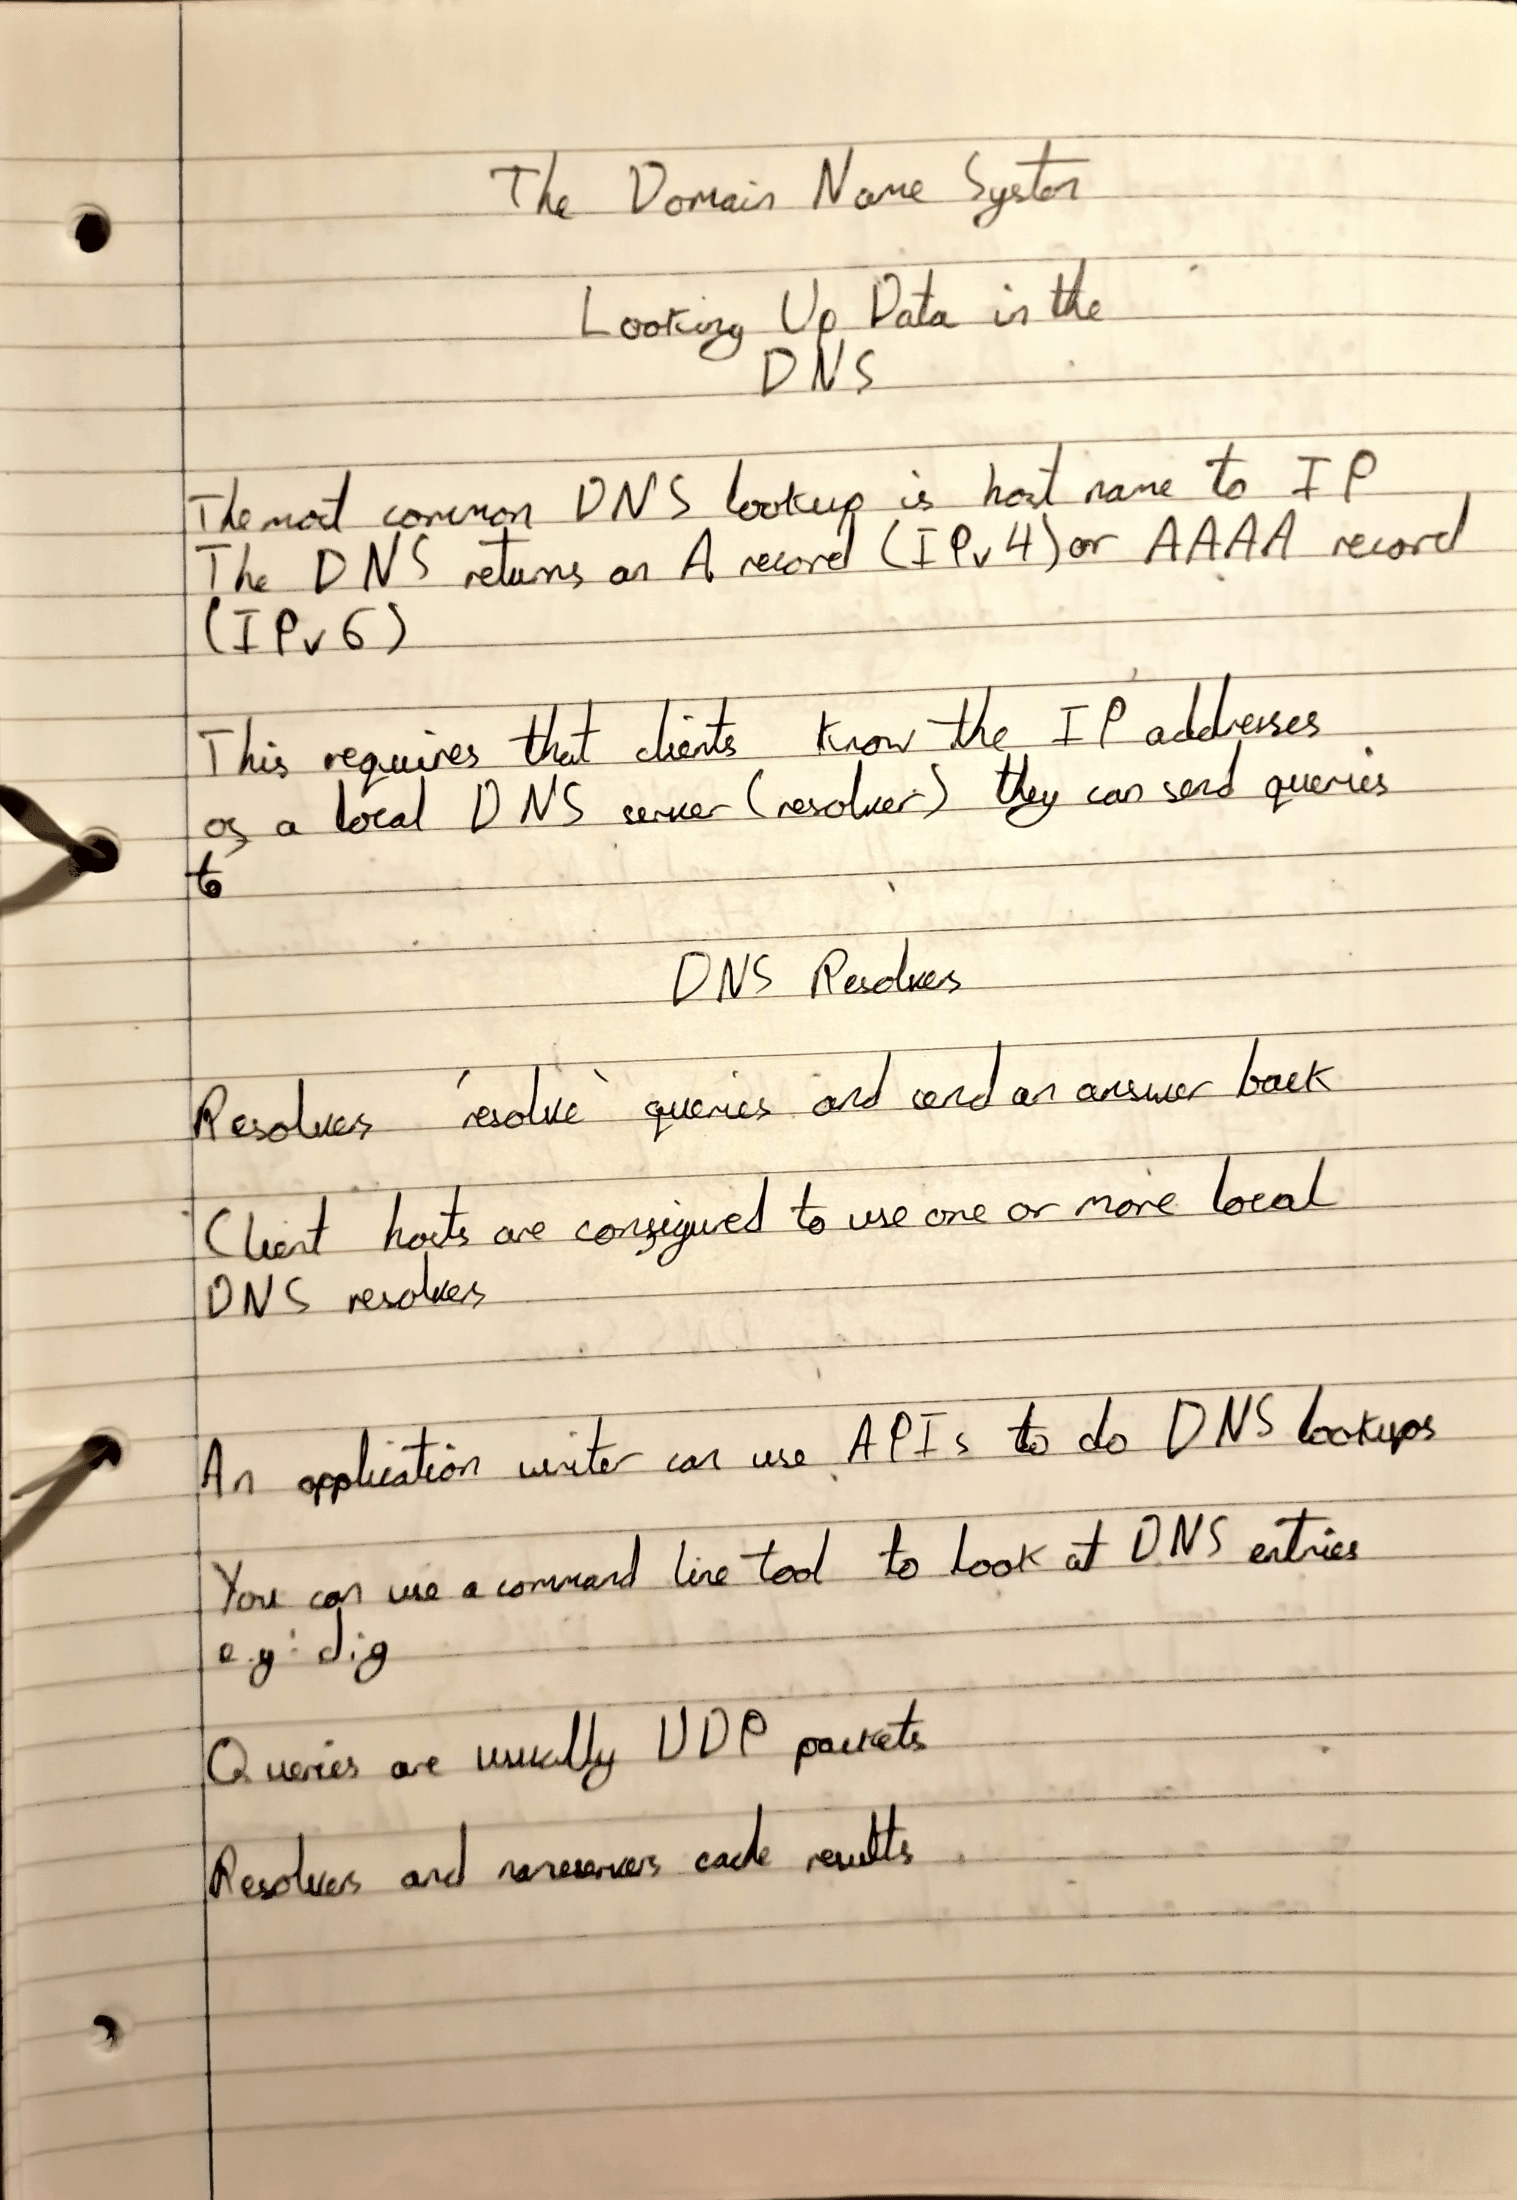 The Domain Name System
Looking Up Data in the
DNS
The most common DNS lookup is host name to IP
The DNS returns an A record (IPv4) or AAAA record
(IPv6)
This requires that clients know the IP addresses
of a local DNS server (resolver) they can send queries
to
DNS Resolvers
Resolvers ´resolve` queries and send an answer back
Client hosts are configured to use one or more local
DNS resolvers
An application writer can use APIs to do DNS lookups
You can use a command line tool to look at DNS entries
e.g: dig
Queries are usually UDP packets
Resolvers and nameservers cache results